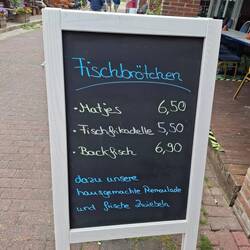 Fischbrötchen
• Matjes 6,50
• Fischfrikadelle 5,50
• Backfisch 6,90
dazu unsere
hausgemachte Remoulade
und frische Zwiebeln